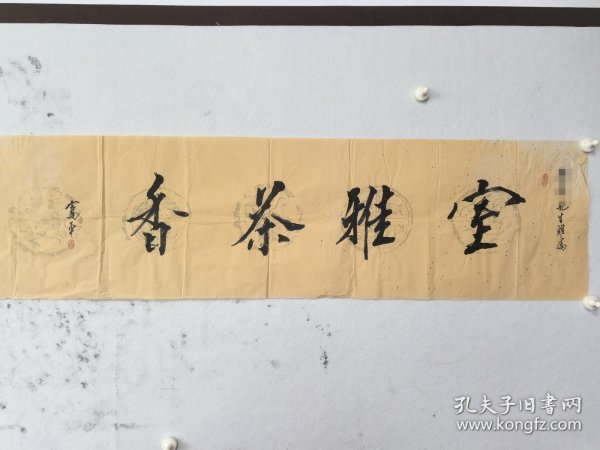 室雅茶香
先生雅属
孔夫子旧书网
www.kongfz.com